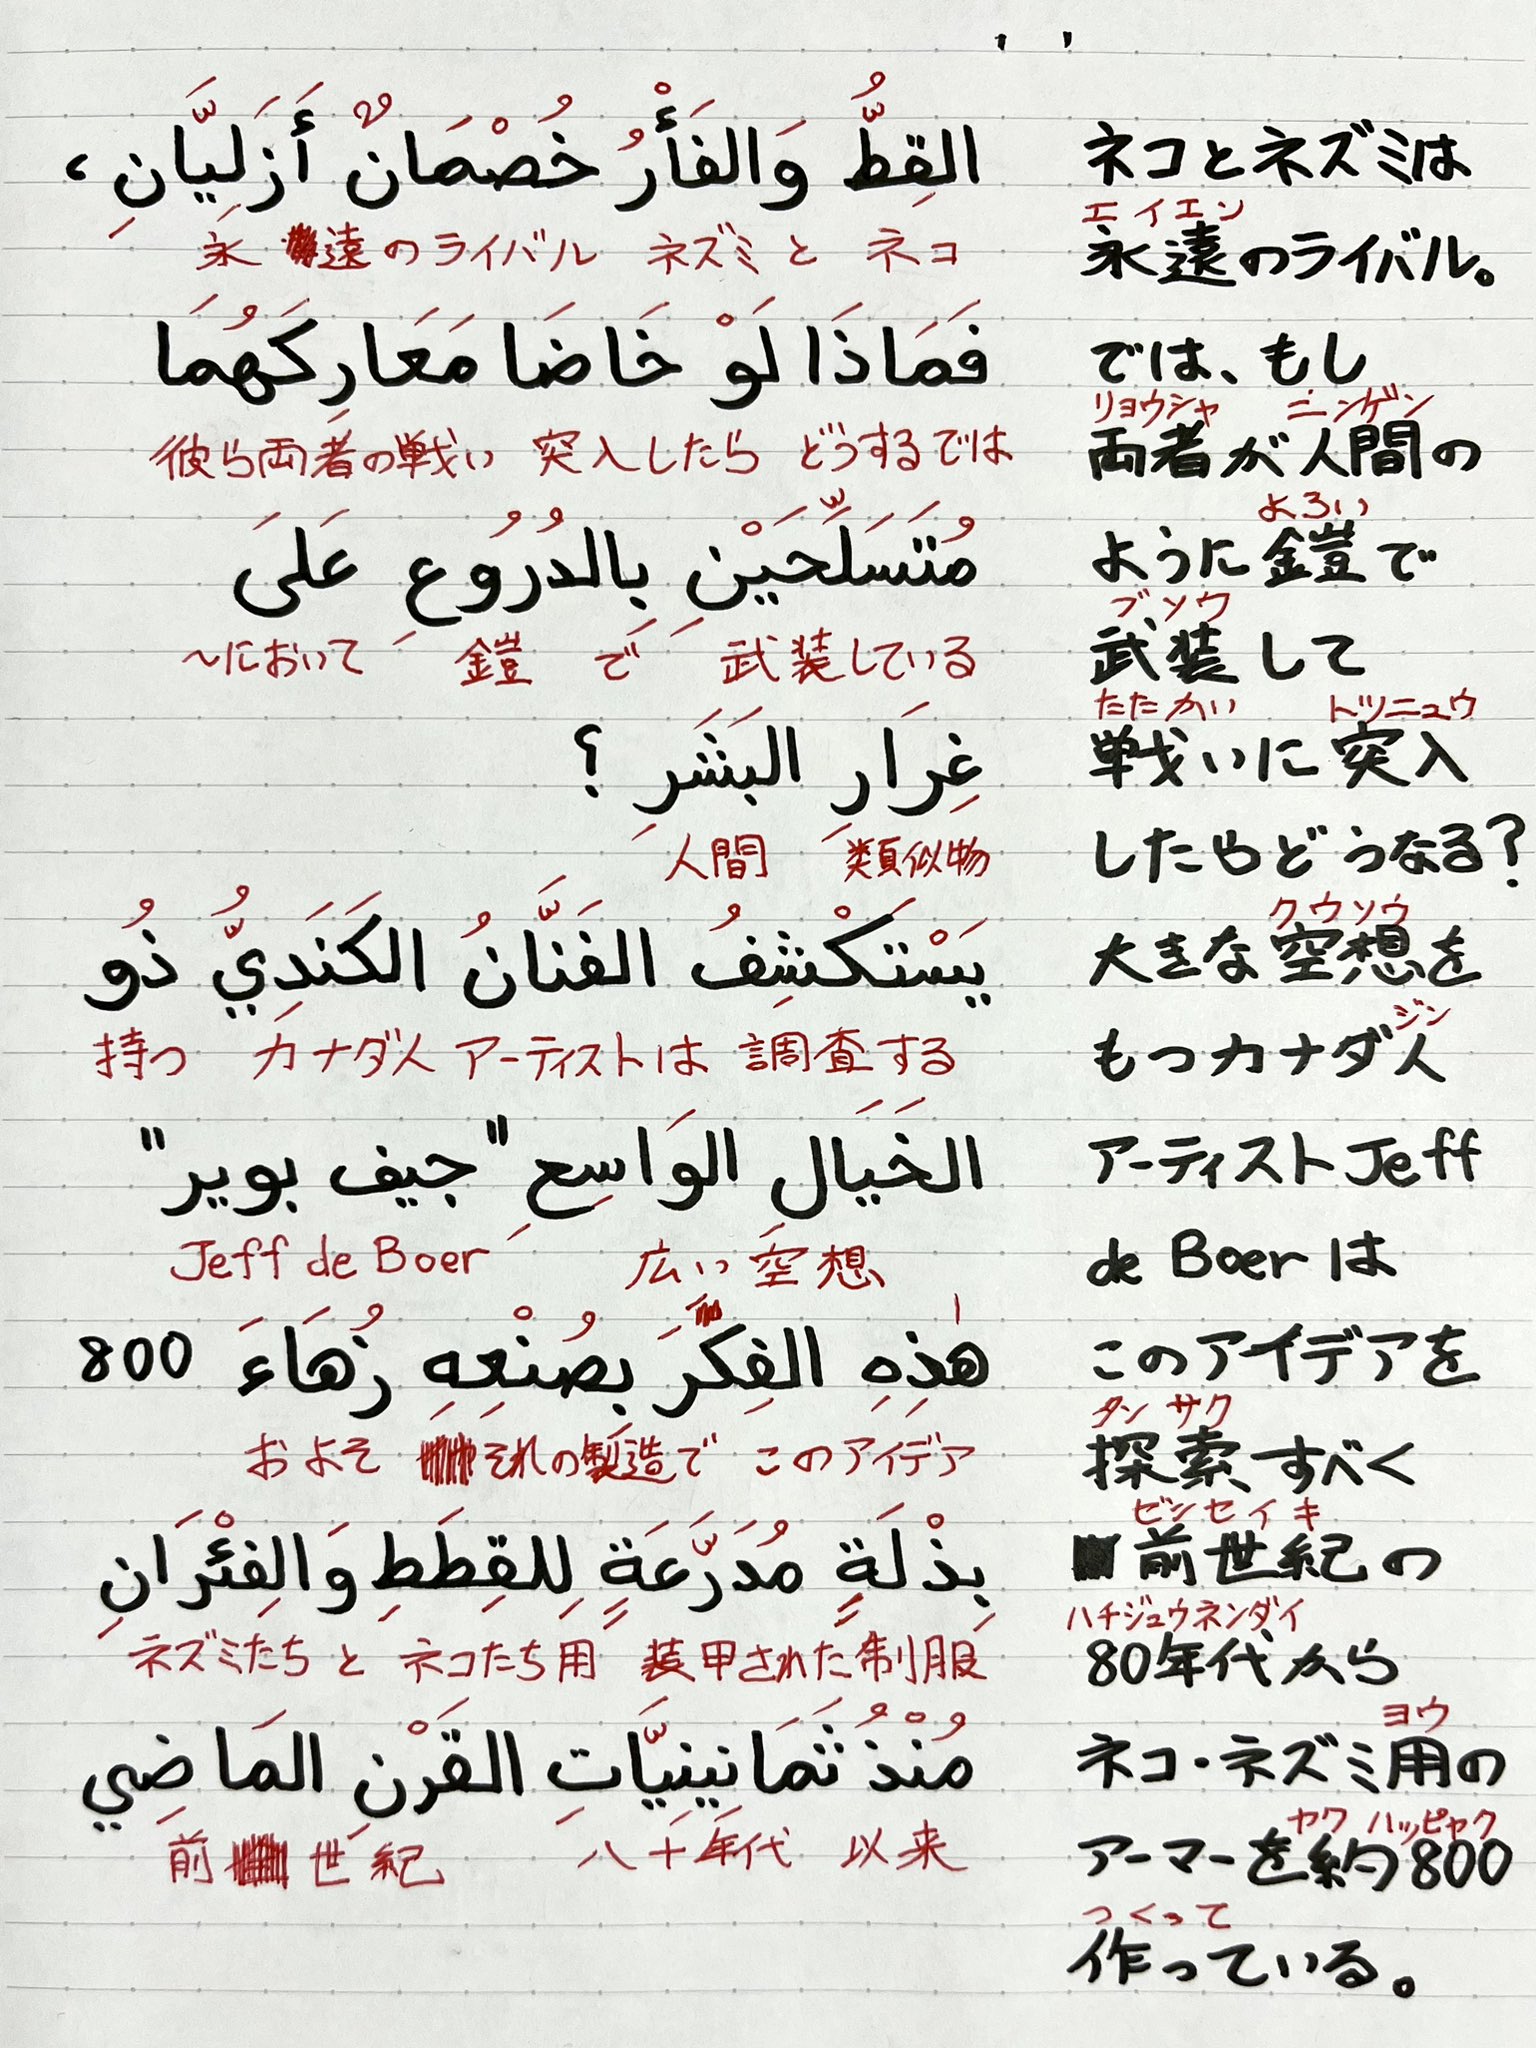 القِطُّ وَالفَأْرُ خُصْمَانٌ أَزَلِيَّانِ،
永遠のライバル ネズミと ネコ
فَمَاذَا لَوْ خَاضَا مَعَارِكَهُمَا
彼ら両者の戦い 突入したら どうするでは
مُتَسَلِّحَيْنِ بِالدُرُوعِ عَلَى
〜において 鎧 で 武装している
غِرَارِ البَشَرِ ؟
人間 類似物
يَسْتَكْشِفُ الفَنَّانُ الكَنَدِيُّ ذُو
持つ カナダ人 アーティストは 調査する
الخَيَالِ الوَاسِعِ "جيف بوير"
Jeff de Boer 広い 空想
هٰذِهِ الفِكَرَ بِصُنْعِهِ زُهَاءَ 800
およそ それの製造で このアイデア
بِذْلَةٍ مُدَرَّعَةٍ لِلقِطَطِ وَالفِئْرَانِ
ネズミたち と ネコたち用 装甲された制服
مُنْذُ ثَمَانِينِيَّاتِ القَرْنِ المَاضِي
前 世紀 八十年代 以来
ネコとネズミは
エイエン
永遠のライバル。
では、もし
リョウシャ ニンゲン
両者が人間の
よろい
ように鎧で
ブソウ
武装して
たたかい トツニュウ
戦いに突入
したらどうなる?
クウソウ
大きな空想を
ジン
もつカナダ人
アーティストJeff
de Boerは
このアイデアを
タンサク
探索すべく
ゼンセイキ
前世紀の
ハチジュウネンダイ
80年代から
ヨウ
ネコ・ネズミ用の
ヤク ハッピャク
アーマーを約800
つくって
作っている。